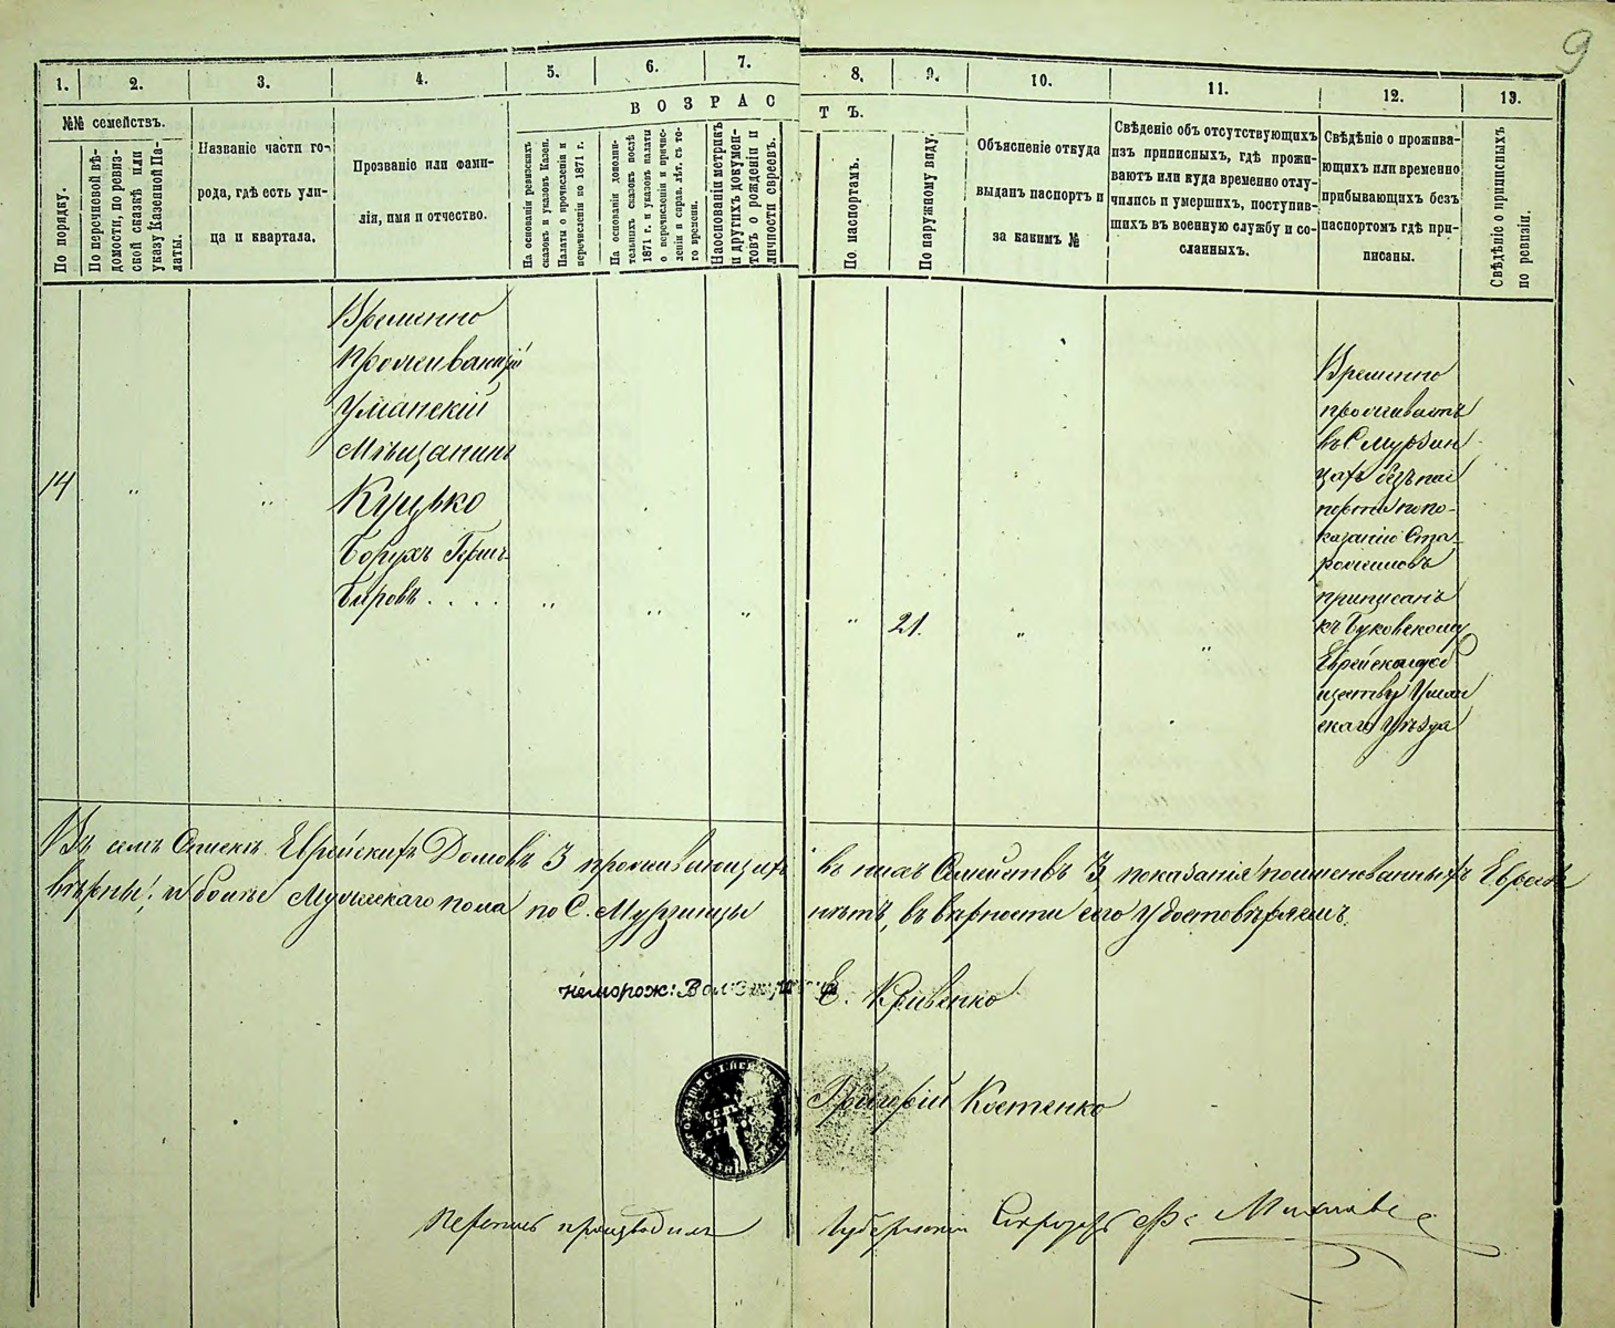 9
1. 2. 3. 4. 5. 6. 7. 8. 9. 10. 11. 12. 13.
№№ семействъ.
По порядку.
По перечневой вѣ-
домости, по ревиз-
ской сказкѣ или
указу Казенной Па-
латы.
Названіе части го-
рода, гдѣ есть ули-
ца и квартала.
Прозваніе или фами-
лія, имя и отчество.
ВОЗРАСТЪ.
На основаніи ревизскихъ
сказокъ и указовъ Казен.
Палаты о причисленіи и
перечисленіи по 1871 г.
На основаніи дополни-
тельныхъ сказокъ послѣ
1871 г. и указовъ палаты
о перечисленіи и причис-
леніи и справ. лѣт. съ то-
го времени.
На основаніи метрикъ
и другихъ докумен-
товъ о рожденіи и
личности евреевъ.
По паспортамъ.
По наружному виду.
Объясненіе откуда
выданъ паспортъ и
за какимъ №
Свѣденіе объ отсутствующихъ
изъ приписныхъ, гдѣ прожи-
ваютъ или куда временно отлу-
чились и умершихъ, поступив-
шихъ въ военную службу и со-
сланныхъ.
Свѣдѣніе о прожива-
ющихъ или временно
прибывающихъ безъ
паспортомъ гдѣ при-
писаны.
Свѣдѣніе о приписныхъ
по ревизіи.
14
Временно
проживающій
Уманскій
Мѣщанинъ
Куцько
Борухъ Герш-
Беровъ . . . .
21.
Временно
проживаетъ
въ С Мурзин
цахъ безъ пас
порта по по-
казанію Ста-
рожиловъ
приписанъ
къ Буковскому
Еврейскому об
ществу Уман
скаго Уѣзда
Въ семъ Спискѣ Еврейскихъ Домовъ 3 проживающихъ въ нихъ Семействъ 3, показанія поименованныхъ Евреевъ
вѣрны, и болѣе Мужескаго пола по С. Мурзинцы нѣтъ, въ вѣрности сего удостовѣряемъ.
Неморож: Е. Кривенко
Григорій Костенко
Перепись производилъ Губернскій Секретарь